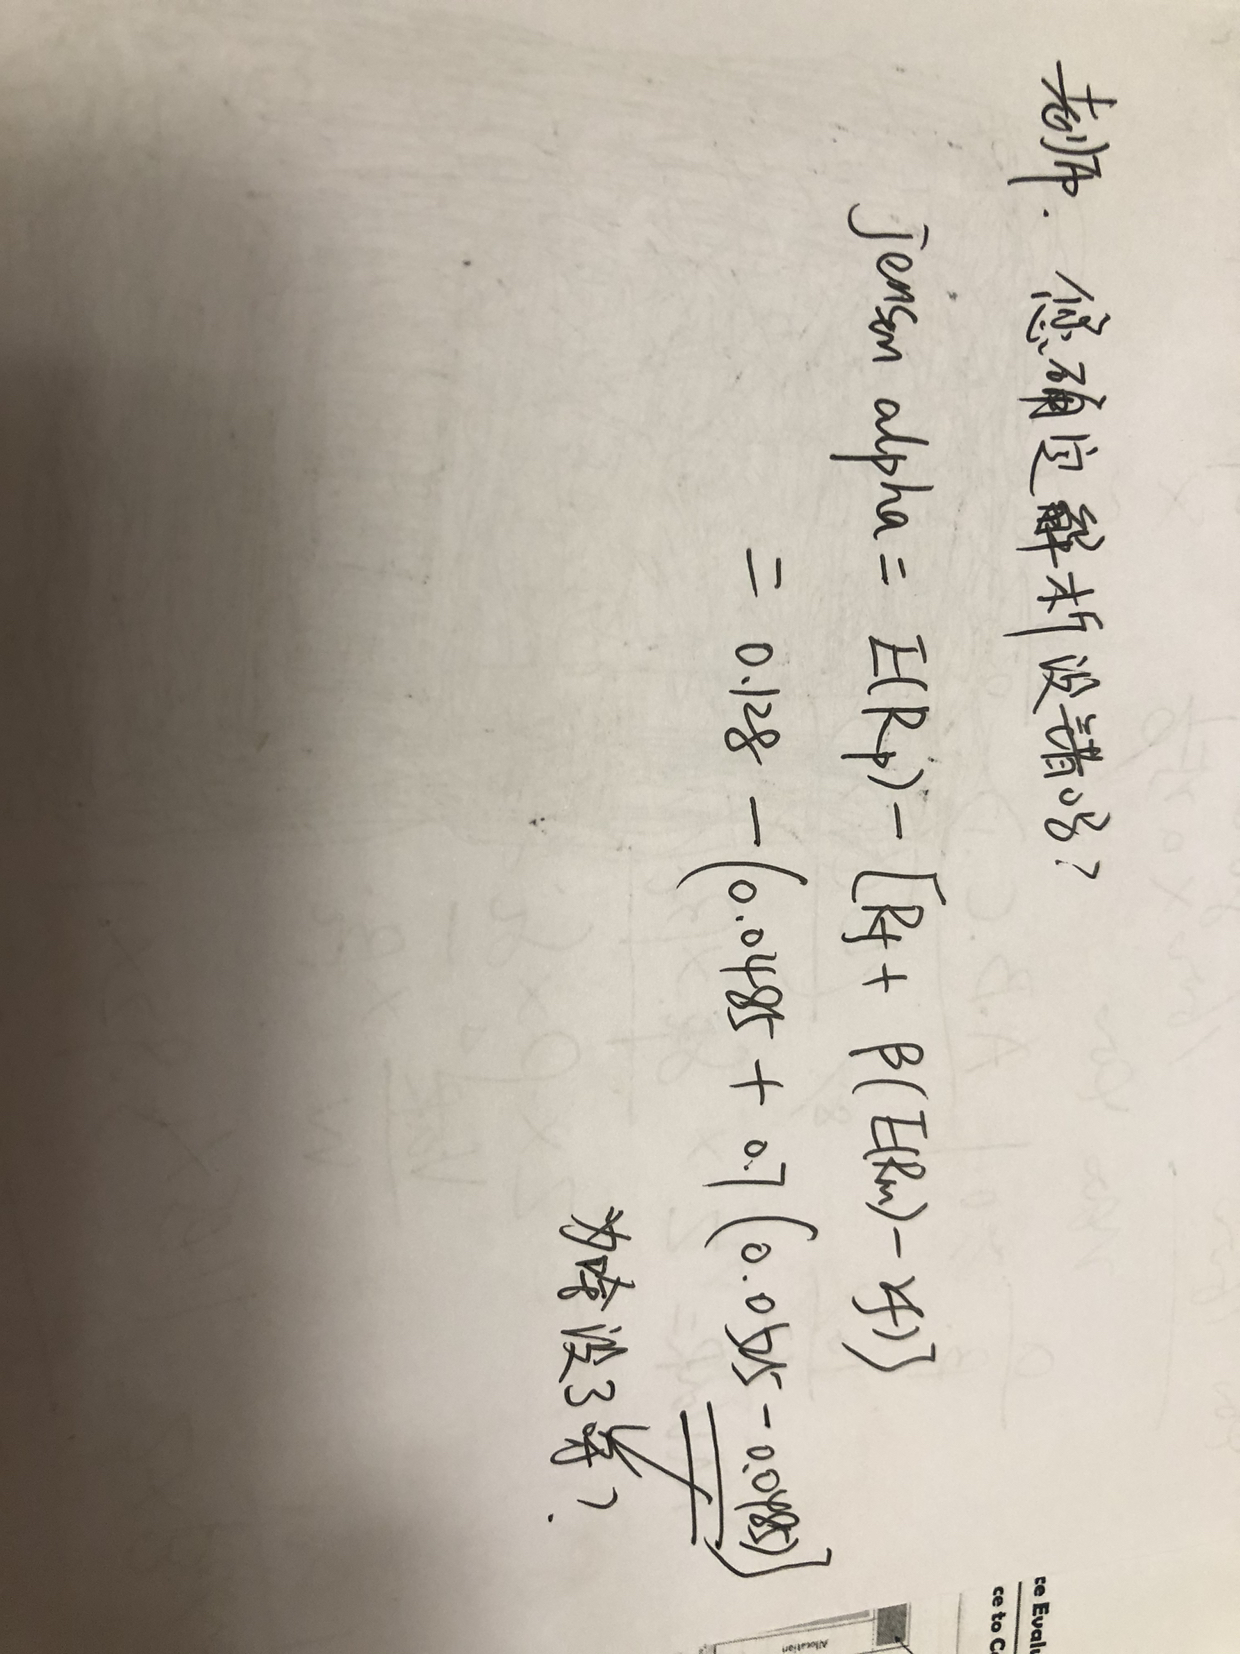 老师.您确定解析没错吗?
Jensen alpha = E(Rp) - [Rf + β(E(Rm) - rf)]
= 0.128 - (0.0485 + 0.7(0.0515 - 0.0485)]
为啥没了呀?
ce Evalu
ce to C
Allocation